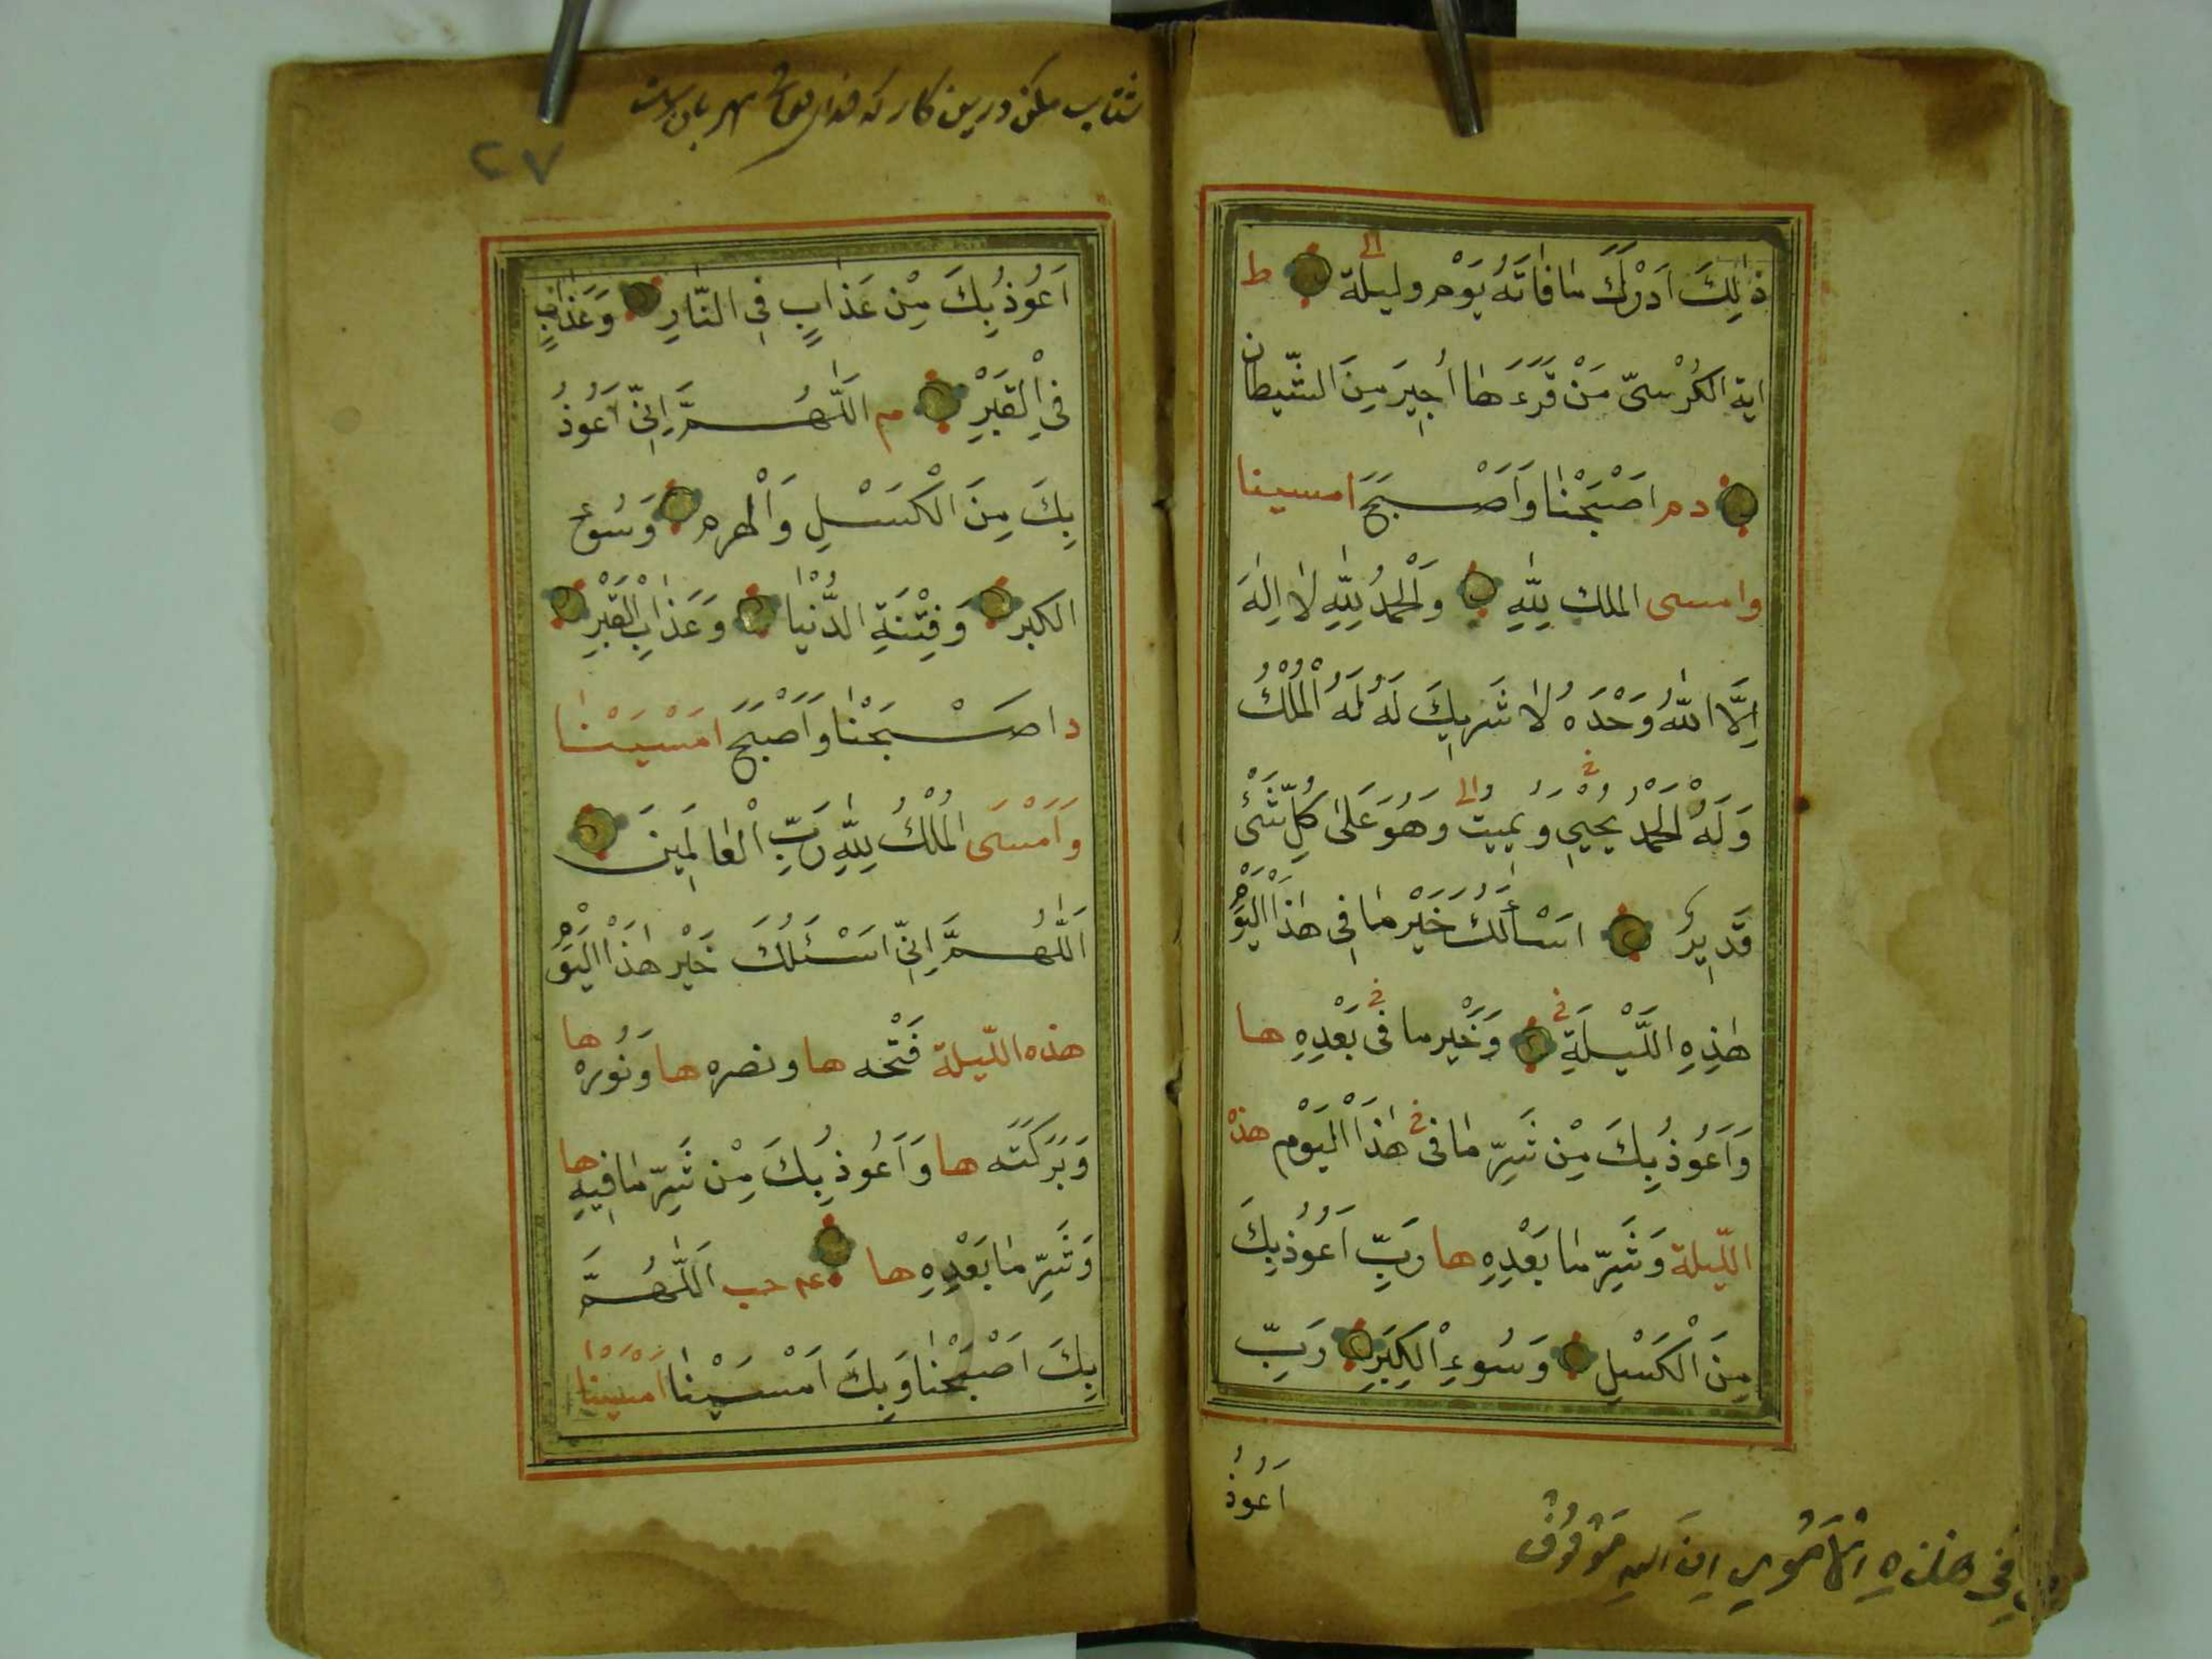 ذٰلِكَ اَدْرَكَ مٰا فٰاتَهُ يَوْم وليلة الا ط
اية الكُرْسىّ مَنْ قَرَءَهٰا اُجِيرَ مِنَ الشّيطان
دم اَصْبَحْنٰا وَاَصْبَحَ امسينا
وامسى الملك لِلّٰهِ وَالْحَمْدُ لِلّٰهِ لٰا اِلٰهَ
اِلَّا اللّٰهُ وَحْدَهُ لٰا شَرِيكَ لَهُ لَهُ الْمُلْكُ
وَلَهُ الْحَمْدُ يُحْيِي وَيُمِيتُ وَهُوَ عَلىٰ كُلِّ شَىْءٍ
قَدِير اَسْأَلُكَ خَيْرَ مٰا فِى هٰذَا الْيَوْمِ
هٰذِهِ اللَّيْلَةِ وَخَيْرَ ما فى بَعْدِهِ ها
وَاَعُوذُ بِكَ مِنْ شَرِّ مٰا فى هٰذَا الْيَوْمِ هذه
اللّيلة وَشَرِّ مٰا بَعْدِهِ ها رَبِّ اَعُوذُ بِكَ
مِنَ الْكَسْلِ وَسُوءِ الْكِبَرِ رَبِّ
اَعُوذُ
فِى هٰذِهِ الْاُمُورِ
شتاب مكن درين كار كه
٢٧
اَعُوذُ بِكَ مِنْ عَذٰابٍ فِى النّٰارِ وَعَذٰابٍ
فِى الْقَبْرِ م اَللّٰهُمَّ اِنِّى اَعُوذُ
بِكَ مِنَ الْكَسْلِ وَالْهرم وَسُوء
الكبر وَفِتْنَةِ الدُّنْيٰا وَعَذٰابِ الْقَبْرِ
د اصْبَحْنٰا وَاَصْبَحَ اَمْسَيْنٰا
وَاَمْسَى الْمُلْكُ لِلّٰهِ رَبِّ الْعٰالَمِينَ
اَللّٰهُمَّ اِنِّى اَسْئَلُكَ خَيْرَ هٰذَا الْيَوْمِ
هذه اللّيلة فَتْحَه ها ونصره ها وَنُورَه ها
وَبَرَكَتَه ها وَاَعُوذُ بِكَ مِنْ شَرِّ مٰا فِيهِ ها
وَشَرِّ مٰا بَعْدِهِ ها عه حب اَللّٰهُمَّ
بِكَ اَصْبَحْنٰا وَبِكَ اَمْسَيْنٰا اَمْسَيْنٰا